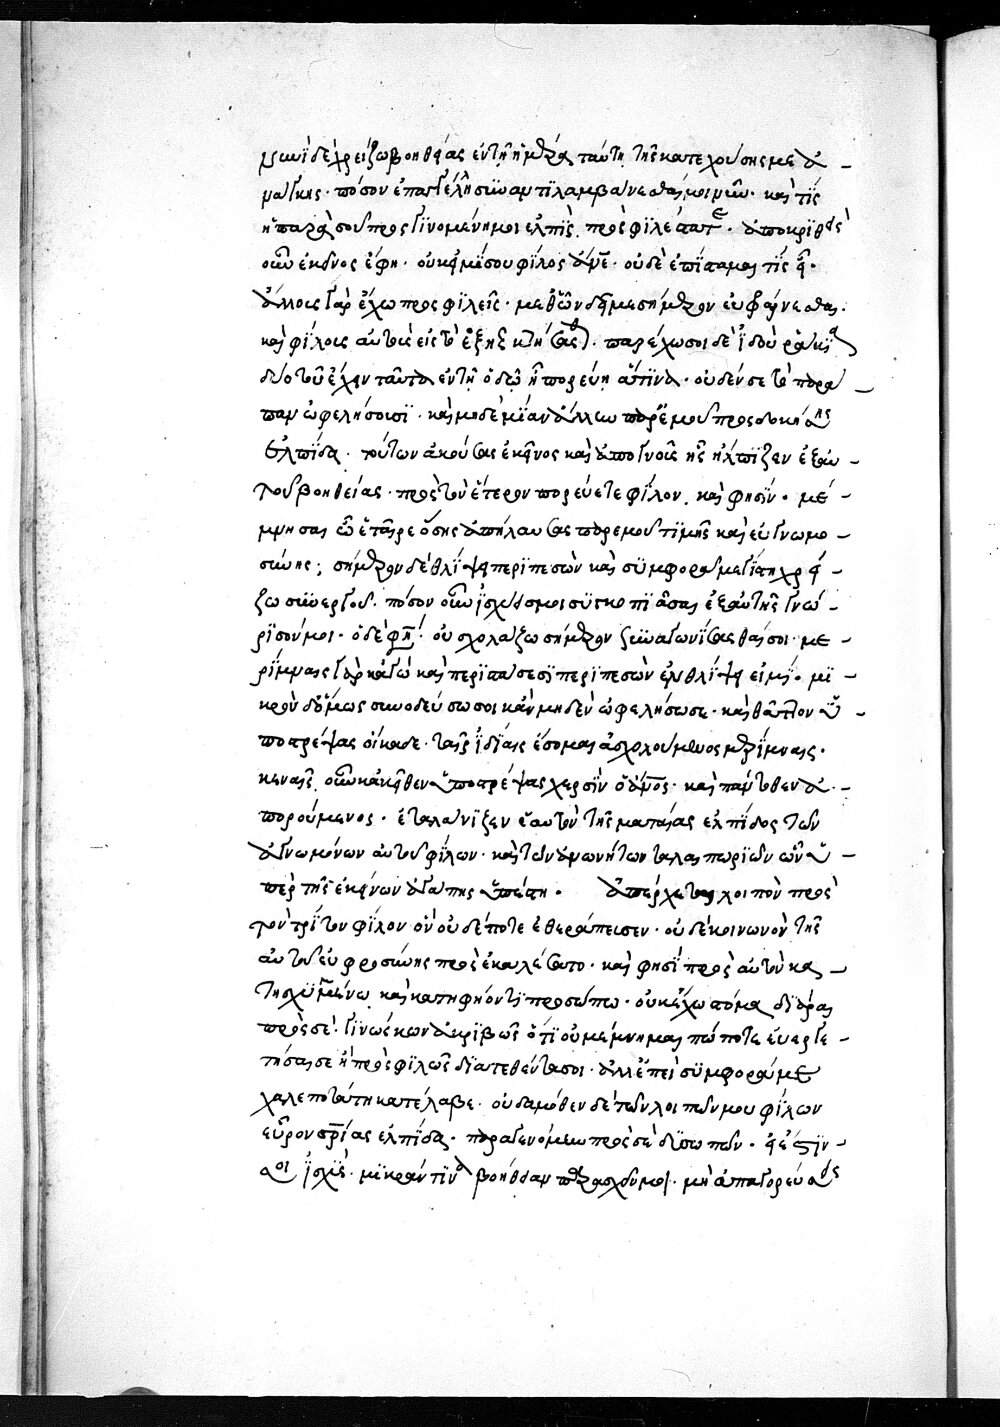 νυνὶ δὲ χρείζω βοηθείας ἐν τῇ ἡμέρα ταύτη τῆς κατεχούσης με ἀ-
νάγκης· πόσον ἐπαγγέλλη σὺν ἀντϊλαμβάνεσθαί μοι νῦν· καὶ τίς
ἡ παρὰ σοῦ προσγϊνομένη μοι ἐλπὶς προσφϊλέστατε· ἀποκριθεὶς
οὖν ἐκεῖνος ἔφη· οὐκ εἰμί σου φίλος ἄνε· οὐδὲ ἐπίσταμαι τίς εἶ·
ἄλλους γὰρ ἔχω προσφϊλεῖς· μεθ' ὧν δεῖ με σήμερον εὐφραίνεσθαι·
καὶ φίλους αὐτοὺς εἰς τὸ ἑξῆς κτήσασθαι· παρέχω σοι δὲ ἰδοὺ ῥάκια
δύο τοῦ ἔχειν ταῦτα ἐν τῇ ὁδῷ ἧ πορεύη ἅτϊνα· οὐδέν σε τὸ παρά-
παν ὠφελήσουσϊ· καὶ μηδεμίαν ἄλλην παρ' ἐμοῦ προσδοκήσης
ἐλπίδα· τούτων ἀκούσας ἐκεῖνος καὶ ἀπογνοὺς ἧς ἤλπϊζεν ἐξ αὐ-
τοῦ βοηθείας· πρὸς τὸν ἕτερον πορεύεται φίλον, καὶ φησΐν· μέ-
μνησαι ὦ ἑταῖρε ὅσης ἀπήλαυσας παρ' ἐμοῦ τϊμῆς καὶ εὐγνωμο-
σύνης; σήμερον δὲ θλίψει περϊπεσὼν καὶ συμφορᾶ μεγίστη χρεί-
ζω συνεργοῦ· πόσον οὖν ἰσχύεις μοι συγκοπϊᾶσαι ἐξαυτῆς γνώ-
ρϊσόν μοι· ὁ δέ φησι· οὐ σχολάζω σήμερον συναγωνίσασθαί σοι· με-
ρίμναις γὰρ κἀγὼ καὶ περϊστάσεσϊ περϊπεσὼν ἐν θλίψει εἰμΐ· μϊ-
κρὸν δ' ὅμως συνοδεύσω σοι κἂν μηδὲν ὠφελήσω σε· καὶ θᾶττον ὑ-
ποστρέψας οἴκαδε· ταῖς ἰδίαις ἔσομαι ἀσχολούμενος μερίμναις·
κεναῖς οὖν κἀκεῖθεν ὑποστρέψας χερσὶν ὁ ἄνος· καὶ πάντοθεν ἀ-
πορούμενος· ἐταλάνϊζεν ἑαυτὸν τῆς ματαίας ἐλπίδος τῶν
ἀγνωμόνων αὐτοῦ φίλων· καὶ τῶν ἀνωνήτων ταλαιπωριῶν ὧν ὑ-
πὲρ τῆς ἐκείνων ἀγάπης ὑπέστη· ἀπέρχεται λοιπὸν πρὸς
τὸν τρίτον φίλον ὃν οὐδέποτε ἐθεράπευσεν· οὐδὲ κοινωνὸν τῆς
αὐτοῦ εὐφροσύνης προσεκαλέσατο· καὶ φησὶ πρὸς αὐτὸν κα-
τησχυμμένω καὶ κατηφιόντϊ προσώπω· οὐκ ἔχω στόμα διᾶραι
πρὸς σέ· γϊνώσκων ἀκρϊβῶς ὅτϊ οὐ μέμνημαι πώποτε εὐεργε-
τήσας σε ἢ προσφϊλῶς διατεθέντα σοι· ἀλλ' ἐπεὶ συμφορά με
χαλεπωτάτη κατέλαβε· οὐδαμόθεν δὲ τῶν λοιπῶν μου φίλων
εὗρον σρίας ἐλπίδα· παραγενόμην πρὸς σὲ δυσωπῶν· εἰ ἔστϊν
σοι ἰσχὺς· μϊκράν τϊνα βοήθειαν παρασχεῖν μοι· μὴ ἀπαγορεύσεις